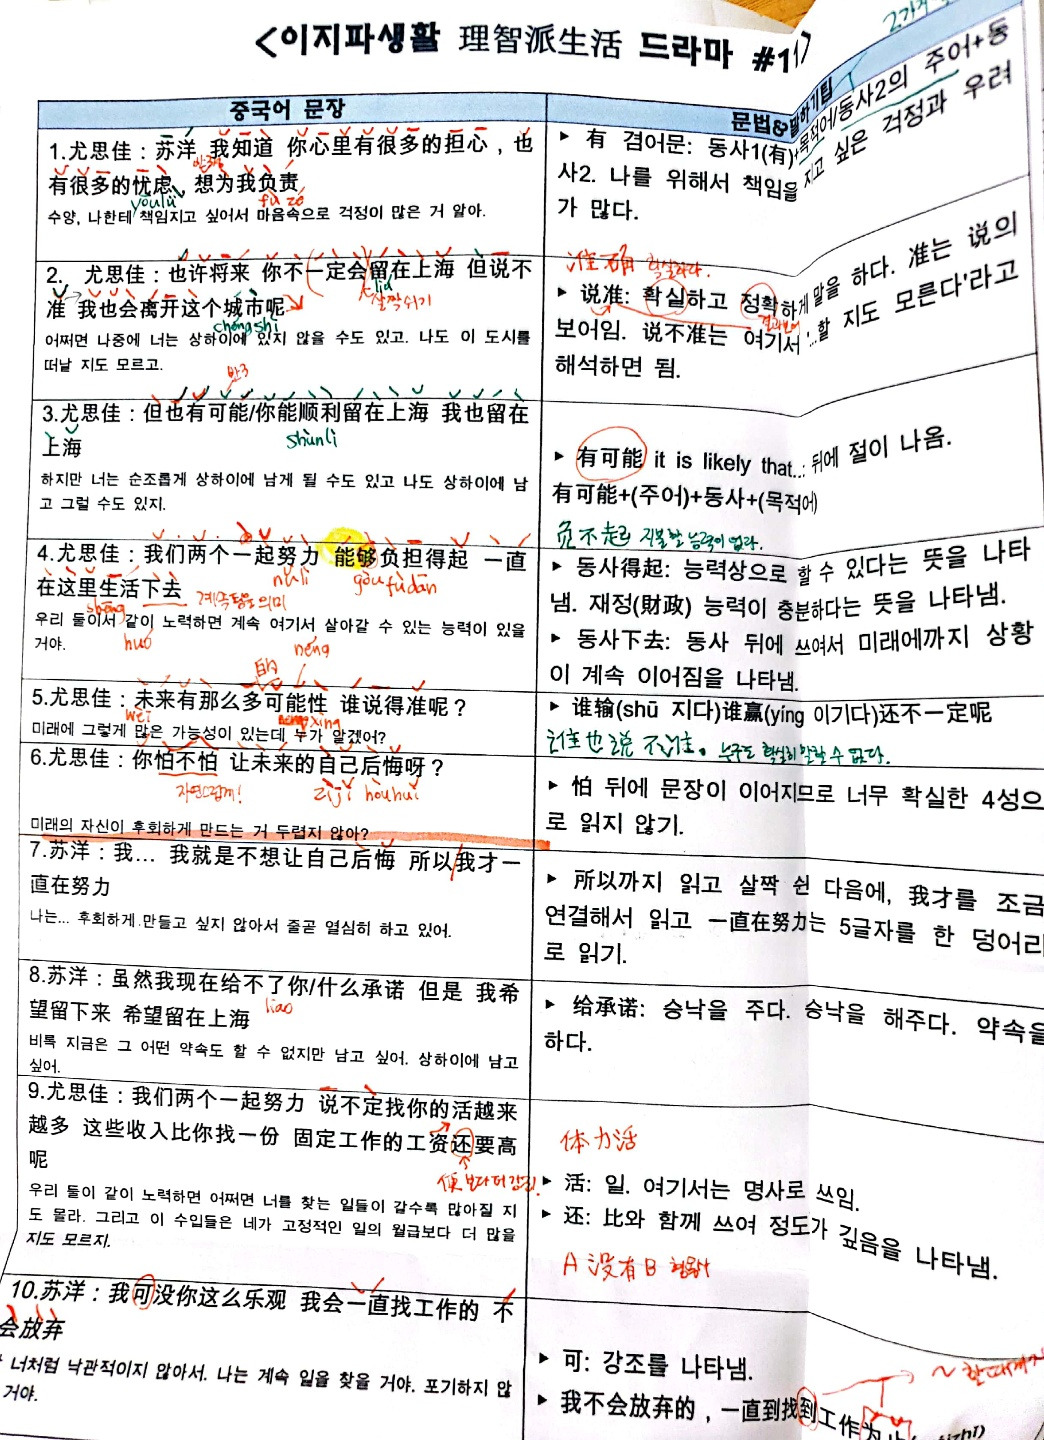 <이지파생활 理智派生活 드라마 #11>
중국어 문장
문법&말하기팁
1.尤思佳：苏洋 我知道 你心里有很多的担心，也
有很多的忧虑，想为我负责
yōulǜ
fù zé
수양, 나한테 책임지고 싶어서 마음속으로 걱정이 많은 거 알아.
▸ 有 겸어문: 동사1(有)+목적어/동사2의 주어+동
사2. 나를 위해서 책임을 지고 싶은 걱정과 우려
가 많다.
2. 尤思佳：也许将来 你不一定会留在上海 但说不
准 我也会离开这个城市呢
liú
살짝 쉬기
chéngshì
어쩌면 나중에 너는 상하이에 있지 않을 수도 있고. 나도 이 도시를
떠날 지도 모르고.
准确 확실하다.
▸ 说准: 확실하고 정확하게 말을 하다. 准는 说의
결과보어
보어임. 说不准는 여기서 '...할 지도 모른다'라고
해석하면 됨.
반3
3.尤思佳：但也有可能/你能顺利留在上海 我也留在
上海
shùnlì
하지만 너는 순조롭게 상하이에 남게 될 수도 있고 나도 상하이에 남
고 그럴 수도 있지.
▸ 有可能 it is likely that..: 뒤에 절이 나옴.
有可能+(주어)+동사+(목적어)
4.尤思佳：我们两个一起努力 能够负担得起 一直
在这里生活下去
nǔlì
gòu fùdān
계속됨을 의미
shēng
huó
우리 둘이서 같이 노력하면 계속 여기서 살아갈 수 있는 능력이 있을
거야.
负不起 지불할 능력이 없다.
▸ 동사得起: 능력상으로 할 수 있다는 뜻을 나타
냄. 재정(財政) 능력이 충분하다는 뜻을 나타냄.
▸ 동사下去: 동사 뒤에 쓰여서 미래에까지 상황
이 계속 이어짐을 나타냄.
的
néng
5.尤思佳：未来有那么多可能性 谁说得准呢？
wèi
xìng
미래에 그렇게 많은 가능성이 있는데 누가 알겠어?
▸ 谁输(shū 지다)谁赢(yíng 이기다)还不一定呢
谁也说不准。누구도 확실히 말할 수 없다.
6.尤思佳：你怕不怕 让未来的自己后悔呀？
자연스럽게!
zìjǐ hòuhuǐ
미래의 자신이 후회하게 만드는 거 두렵지 않아?
▸ 怕 뒤에 문장이 이어지므로 너무 확실한 4성으
로 읽지 않기.
7.苏洋：我... 我就是不想让自己后悔 所以我才一
直在努力
나는... 후회하게 만들고 싶지 않아서 줄곧 열심히 하고 있어.
▸ 所以까지 읽고 살짝 쉰 다음에, 我才를 조금
연결해서 읽고 一直在努力는 5글자를 한 덩어리
로 읽기.
8.苏洋：虽然我现在给不了你/什么承诺 但是 我希
望留下来 希望留在上海
liao
비록 지금은 그 어떤 약속도 할 수 없지만 남고 싶어. 상하이에 남고
싶어.
▸ 给承诺: 승낙을 주다. 승낙을 해주다. 약속을
하다.
9.尤思佳：我们两个一起努力 说不定找你的活越来
越多 这些收入比你找一份 固定工作的工资还要高
呢
우리 둘이 같이 노력하면 어쩌면 너를 찾는 일들이 갈수록 많아질 지
도 몰라. 그리고 이 수입들은 네가 고정적인 일의 월급보다 더 많을
지도 모르지.
体力活
▸ 活: 일. 여기서는 명사로 쓰임.
▸ 还: 比와 함께 쓰여 정도가 깊음을 나타냄.
A 没有 B 형용사
10.苏洋：我可没你这么乐观 我会一直找工作的 不
会放弃
너처럼 낙관적이지 않아서. 나는 계속 일을 찾을 거야. 포기하지 않
거야.
▸ 可: 강조를 나타냄.
▸ 我不会放弃的，一直到找到工作为止